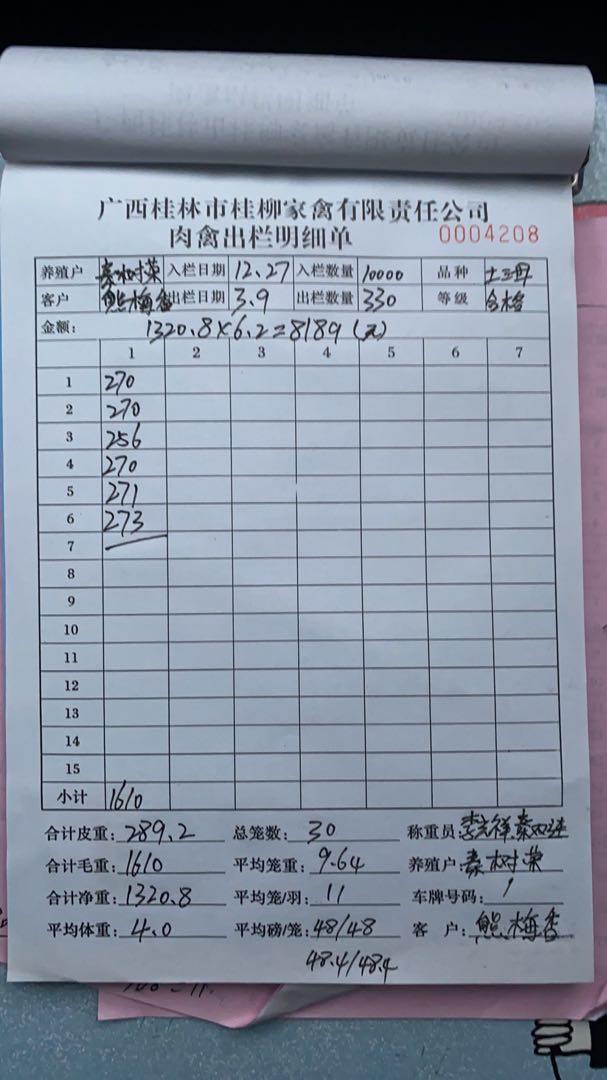 广西桂林市桂柳家禽有限责任公司
肉禽出栏明细单 0004208
养殖户 秦树荣 入栏日期 12.27 入栏数量 10000 品种 土三号
客户 熊梅香 出栏日期 3.9 出栏数量 330 等级 合格
金额: 1320.8×6.2=8189(元)
1 2 3 4 5 6 7
1 270
2 270
3 256
4 270
5 271
6 273
7
8
9
10
11
12
13
14
15
小计 1610
合计皮重: 289.2 总笼数: 30 称重员:
合计毛重: 1610 平均笼重: 9.64 养殖户: 秦树荣
合计净重: 1320.8 平均笼/羽: 11 车牌号码: /
平均体重: 4.0 平均磅/笼: 48/48 客户: 熊梅香
48.4/48.4